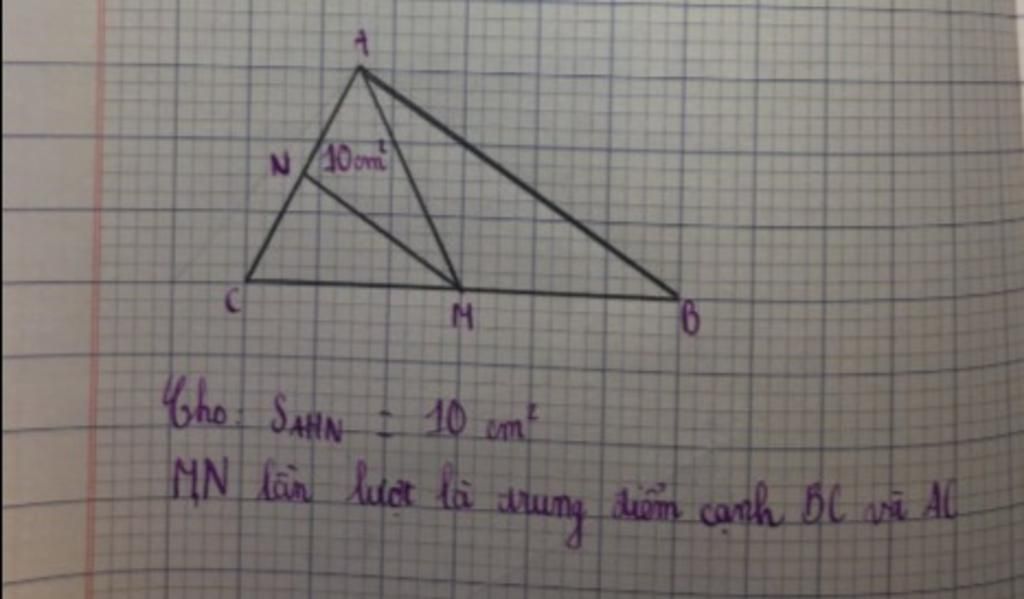 A
N 10cm²
C M B
Cho: SAMN = 10 cm²
MN lần lượt là trung điểm cạnh BC và AC